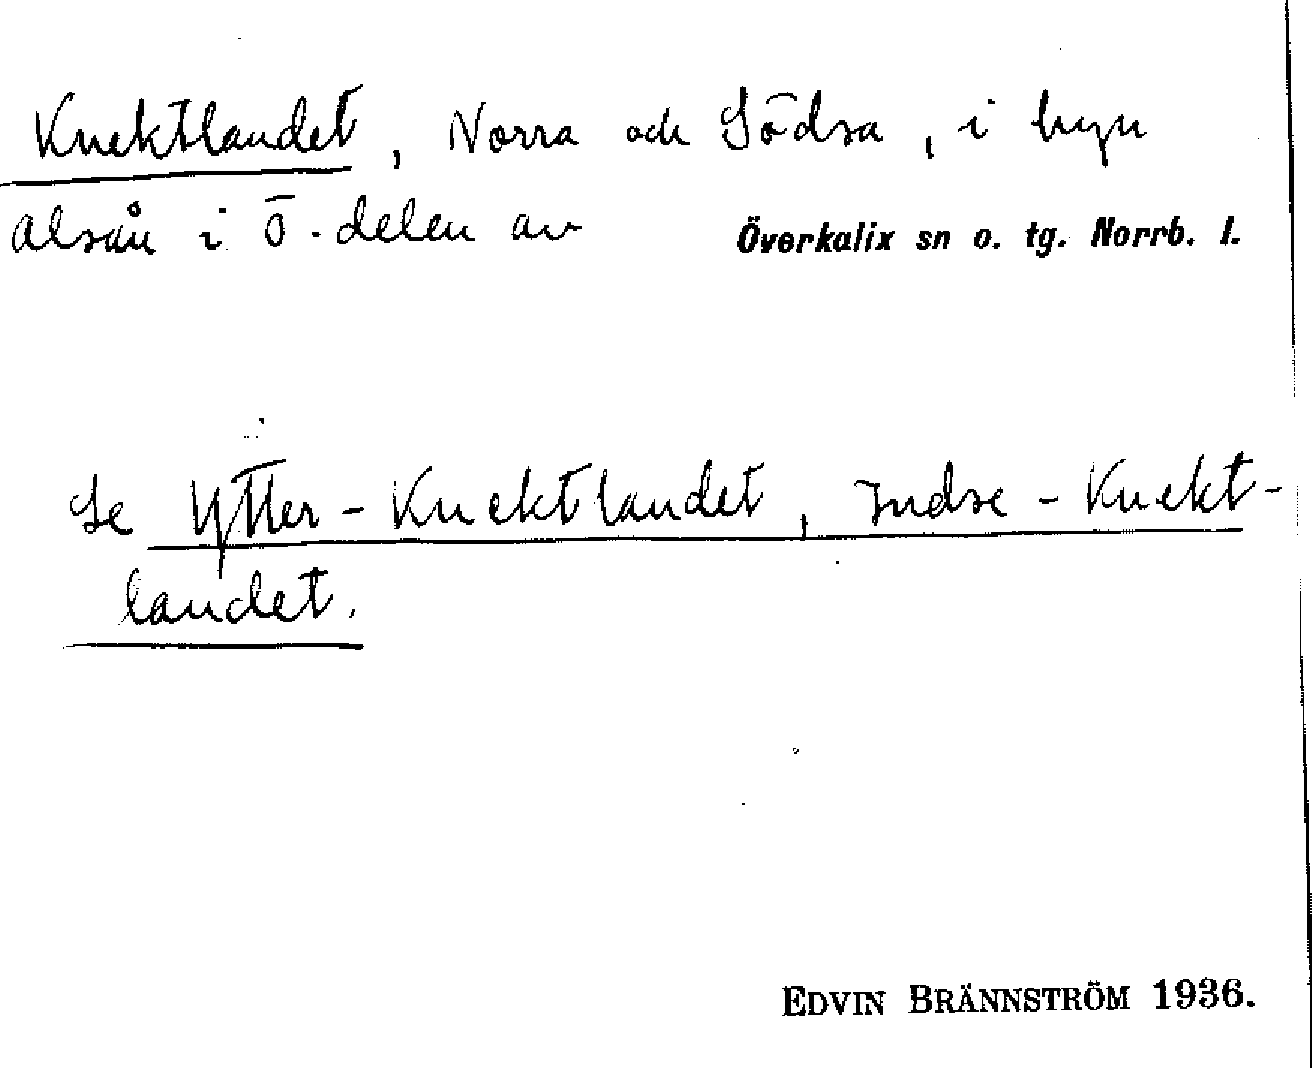 Knektlandet, Norra och Södra, i byn
Alsån i Ö-delen av Överkalix sn o. tg. Norrb. l.
Se Ytter-Knektlandet, Indre-Knekt-
landet.
EDVIN BRÄNNSTRÖM 1936.